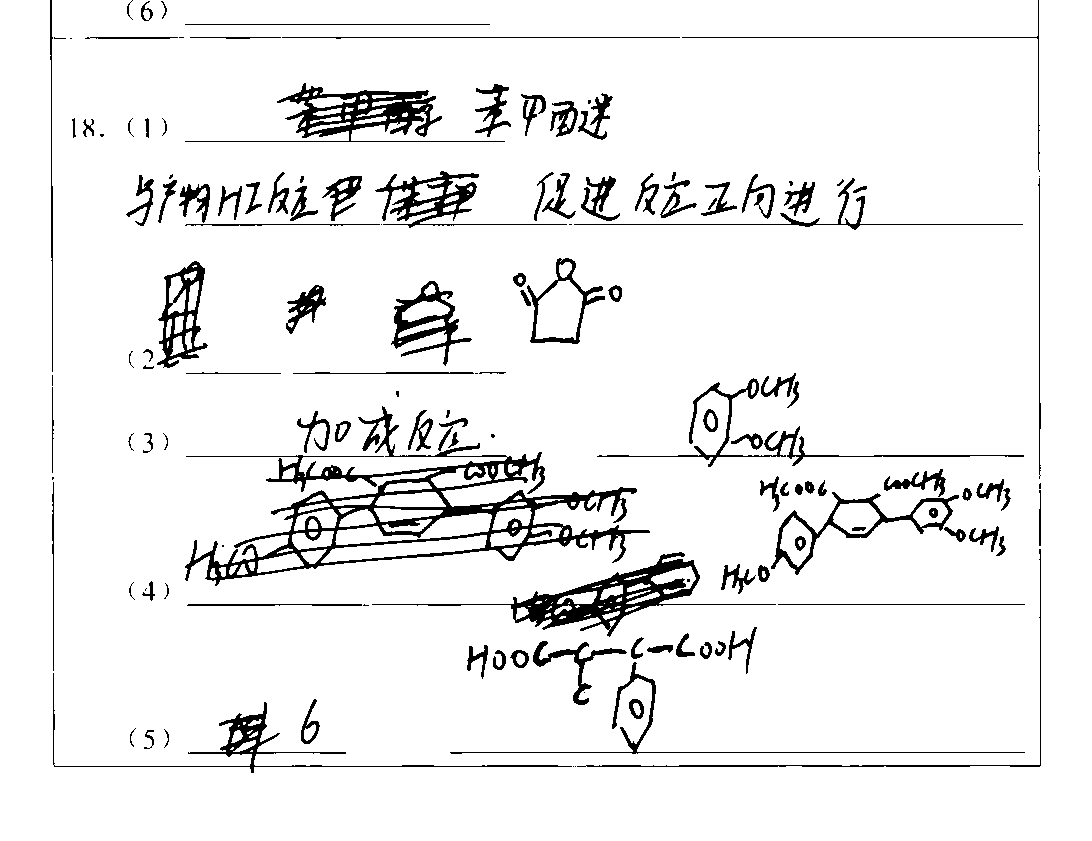 (6)
18. (1) 苯甲酉迷
与产物HI反应 促进反应正向进行
O O O
(2
(3) 加成反应. OCH3 OCH3
H3COOC COOCH3 OCH3 OCH3 H3CO
(4)
HOOC-C-C-COOH
C
(5) 6